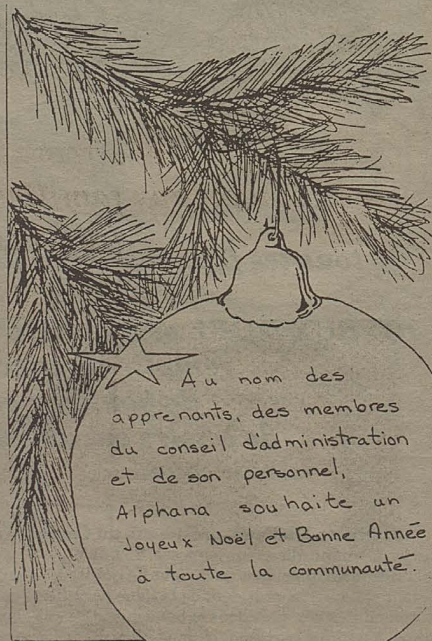 Au nom des
apprenants, des membres
du conseil d'administration
et de son personnel,
Alphana souhaite un
Joyeux Noël et Bonne Année
à toute la communauté.